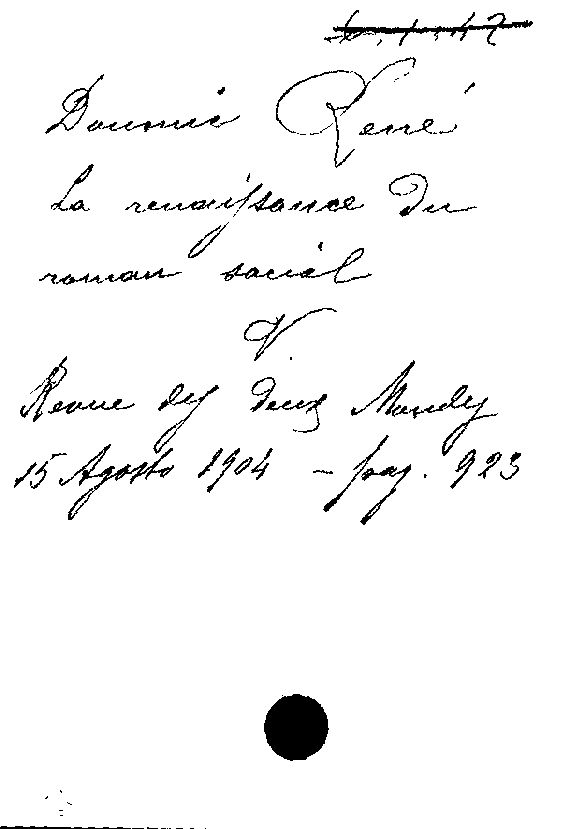 Doumic René
La renaissance du
roman social
V.
Revue des deux Mondes
15 Agosto 1904 - pag. 923